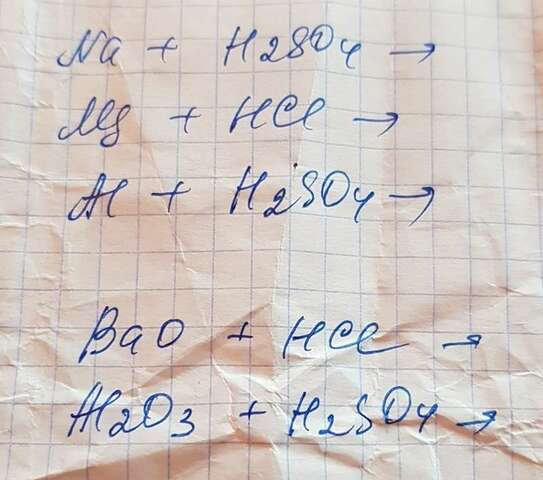 Na + H2SO4 →
Mg + HCl →
Al + H2SO4 →
BaO + HCl →
Al2O3 + H2SO4 →